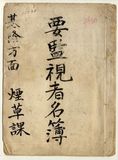 要監視者名簿
其ノ他方面
煙草課